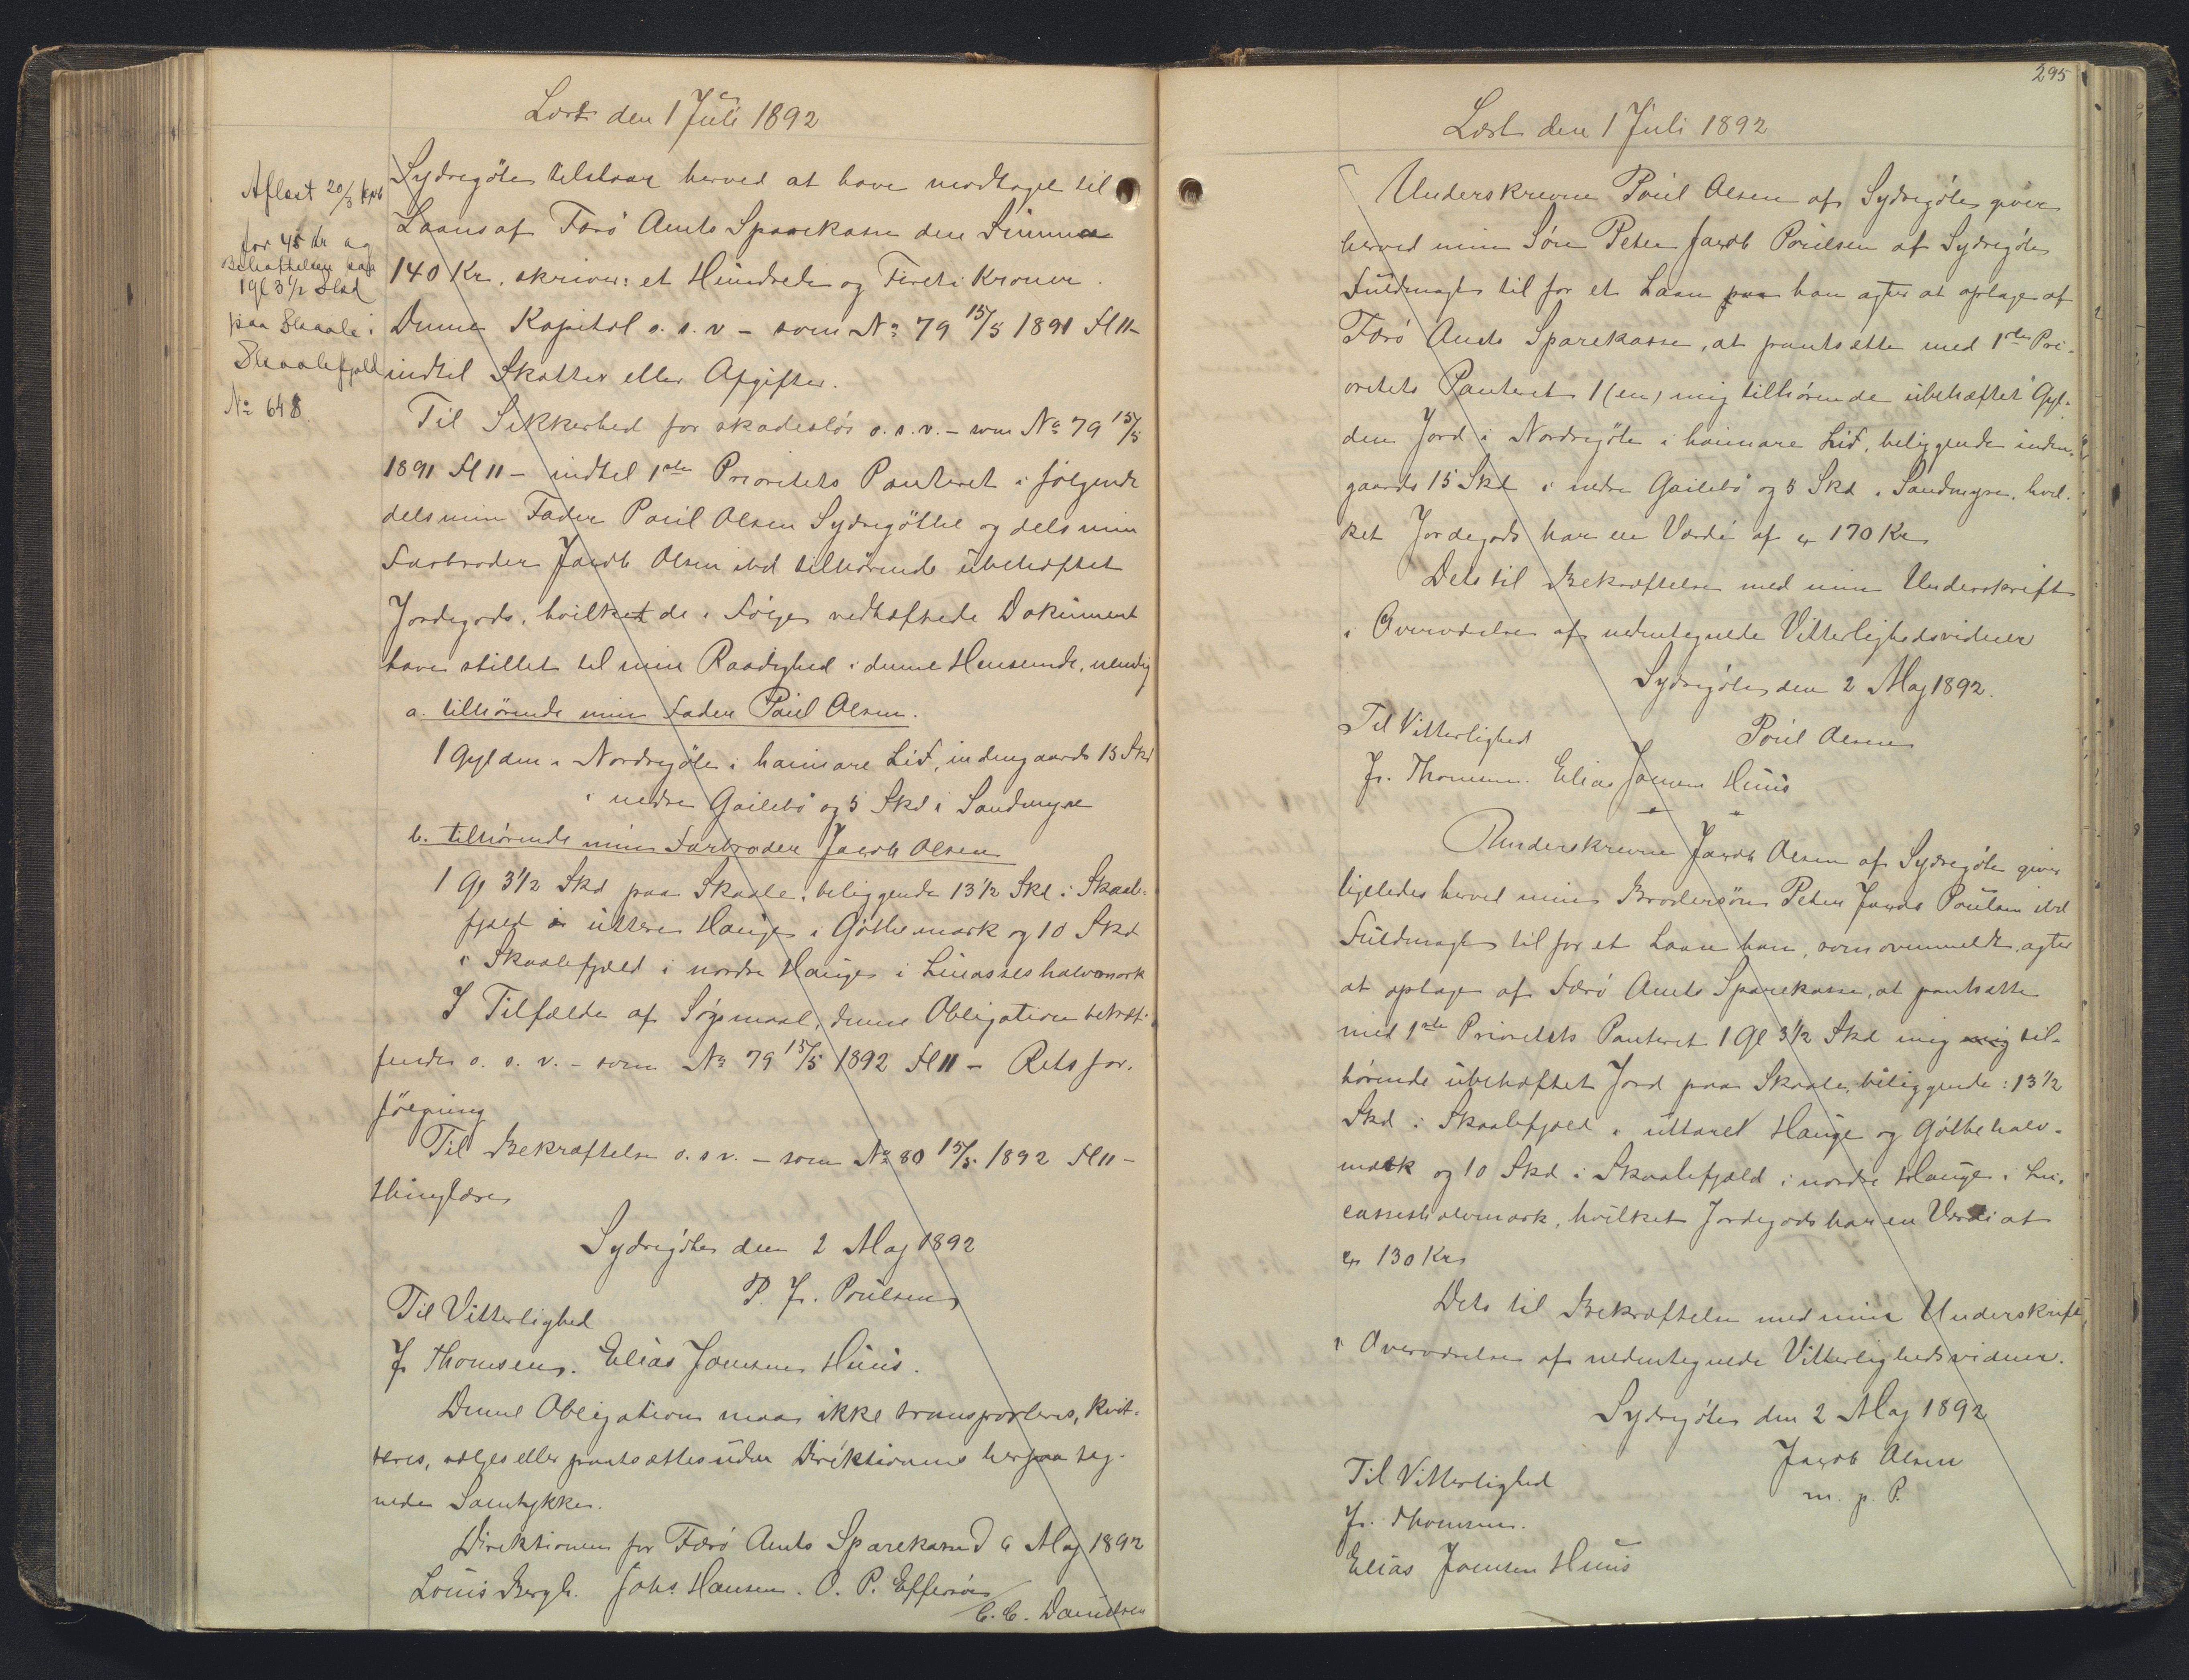 Læst den 1 Juli 1892
Aflæst 20/3
for 45 Kr og
Behæftelsen paa
1 Gl 3 1/2 Skd
paa Skaale i
Skaalefjeld
No 648
Sydregöte tilstaar herved at have modtaget til
Laans af Færö Amts Sparekasse den Summa
140 Kr. skriver: et Hundrede og Fireti Kroner.
Denne Kapital o. s. v - som No 79 15/5 1891 Fl 11-
indtil Skatter eller Afgifter.
Til Sikkerhed for skadeslös o. s. v. - som No 79 15/5
1891 Fl 11 - indtil 1ste Prioritets Panteret i fölgende
dels min Fader Poul Olsen Sydregöthe og dels min
Farbroder Jacob Olsen ibd tilhörende ubehæftet
Jordegods, hvilket de i Fölge vedhæftede Dokument
have stillet til min Raadighed i denne Henseende, nemlig
a. tilhörende min Fader Poul Olsen.
1 Gylden i Nordregöte i haimare Lid, indengaards 15 Skd
i nedre Gailebö og 5 Skd i Sandmyre
b. tilhörende min Farbroder Jacob Olsen
1 Gl 3 1/2 Skd paa Skaale, beliggende 13 1/2 Skd i Skaale-
fjeld i uttere Hauge i Göthemark og 10 Skd
i Skaalefjeld i nordre Hauge i Lucasses halvmark
I Tilfælde af Sögsmaal, denne Obligation betræf-
fende o. s. v. - som No 79 15/5 1892 Fl 11 - Rets for-
fölgning
Til Bekræftelse o. s v. - som No 80 15/5 1892 Fl 11 -
thinglæses
Sydregöte den 2 Maj 1892
P. J. Poulsen
Til Vitterlighed
J. Thomsen. Elias Joensen Huus.
Denne Obligation maa ikke transporteres, kvit-
teres, sælges eller pantsættes uden Direktionens herpaa teg-
nede Samtykke.
Direktionen for Færö Amts Sparekasse d 6 Maj 1892
Louis Bergh. Johs Hansen. O. P. Effersöe
C. C. Danielsen
295
Læst den 1 Juli 1892
Underskrevne Poul Olsen af Sydregöte giver
herved min Sön Peter Jacob Poulsen af Sydregöte
Fuldmagt til for et Laan han agter at optage af
Færö Amts Sparekasse, at pantsætte med 1ste Pri-
oritets Panteret 1 (en) mig tilhörende ubehæftet Gyl-
den Jord i Nordregöte i haimare Lid, beliggende inden-
gaards 15 Skd i nedre Gailebö og 5 Skd i Sandmyre, hvil-
ket Jordegods har en Værdi af 170 Kr
Dets til Bekræftelse med min Underskrift
i Overværelse af undertegnede Vitterlighedsvidner
Sydregöte den 2 Maj 1892.
Til Vitterlighed Poul Olsen
J. Thomsen. Elias Joensen Huus
Underskrevne Jacob Olsen af Sydregöte giver
ligeledes herved min Brodersön Peter Jacob Poulsen ibd
Fuldmagt til for et Laan han, som ovenmeldt, agter
at optage af Færö Amts Sparekasse, at pantsætte
med 1ste Prioritets Panteret 1 Gl 3 1/2 Skd mig til-
hörende ubehæftet Jord paa Skaale, beliggende: 13 1/2
Skd i Skaalefjæld i uttaret Hauge og Göthe halv-
mark og 10 Skd i Skaalefjæld i nordre Hauge i Lu-
cassesh alvmark, hvilket Jordegods har en Værdi at
130 Kr
Dets til Bekræftelse med min Underskrift,
i Overværelse af nedentegnede Vitterlighedsvidner.
Sydregöte den 2 Maj 1892
Jacob Olsen
m. p. P.
Til Vitterlighed
J. Thomsen.
Elias Joensen Huus